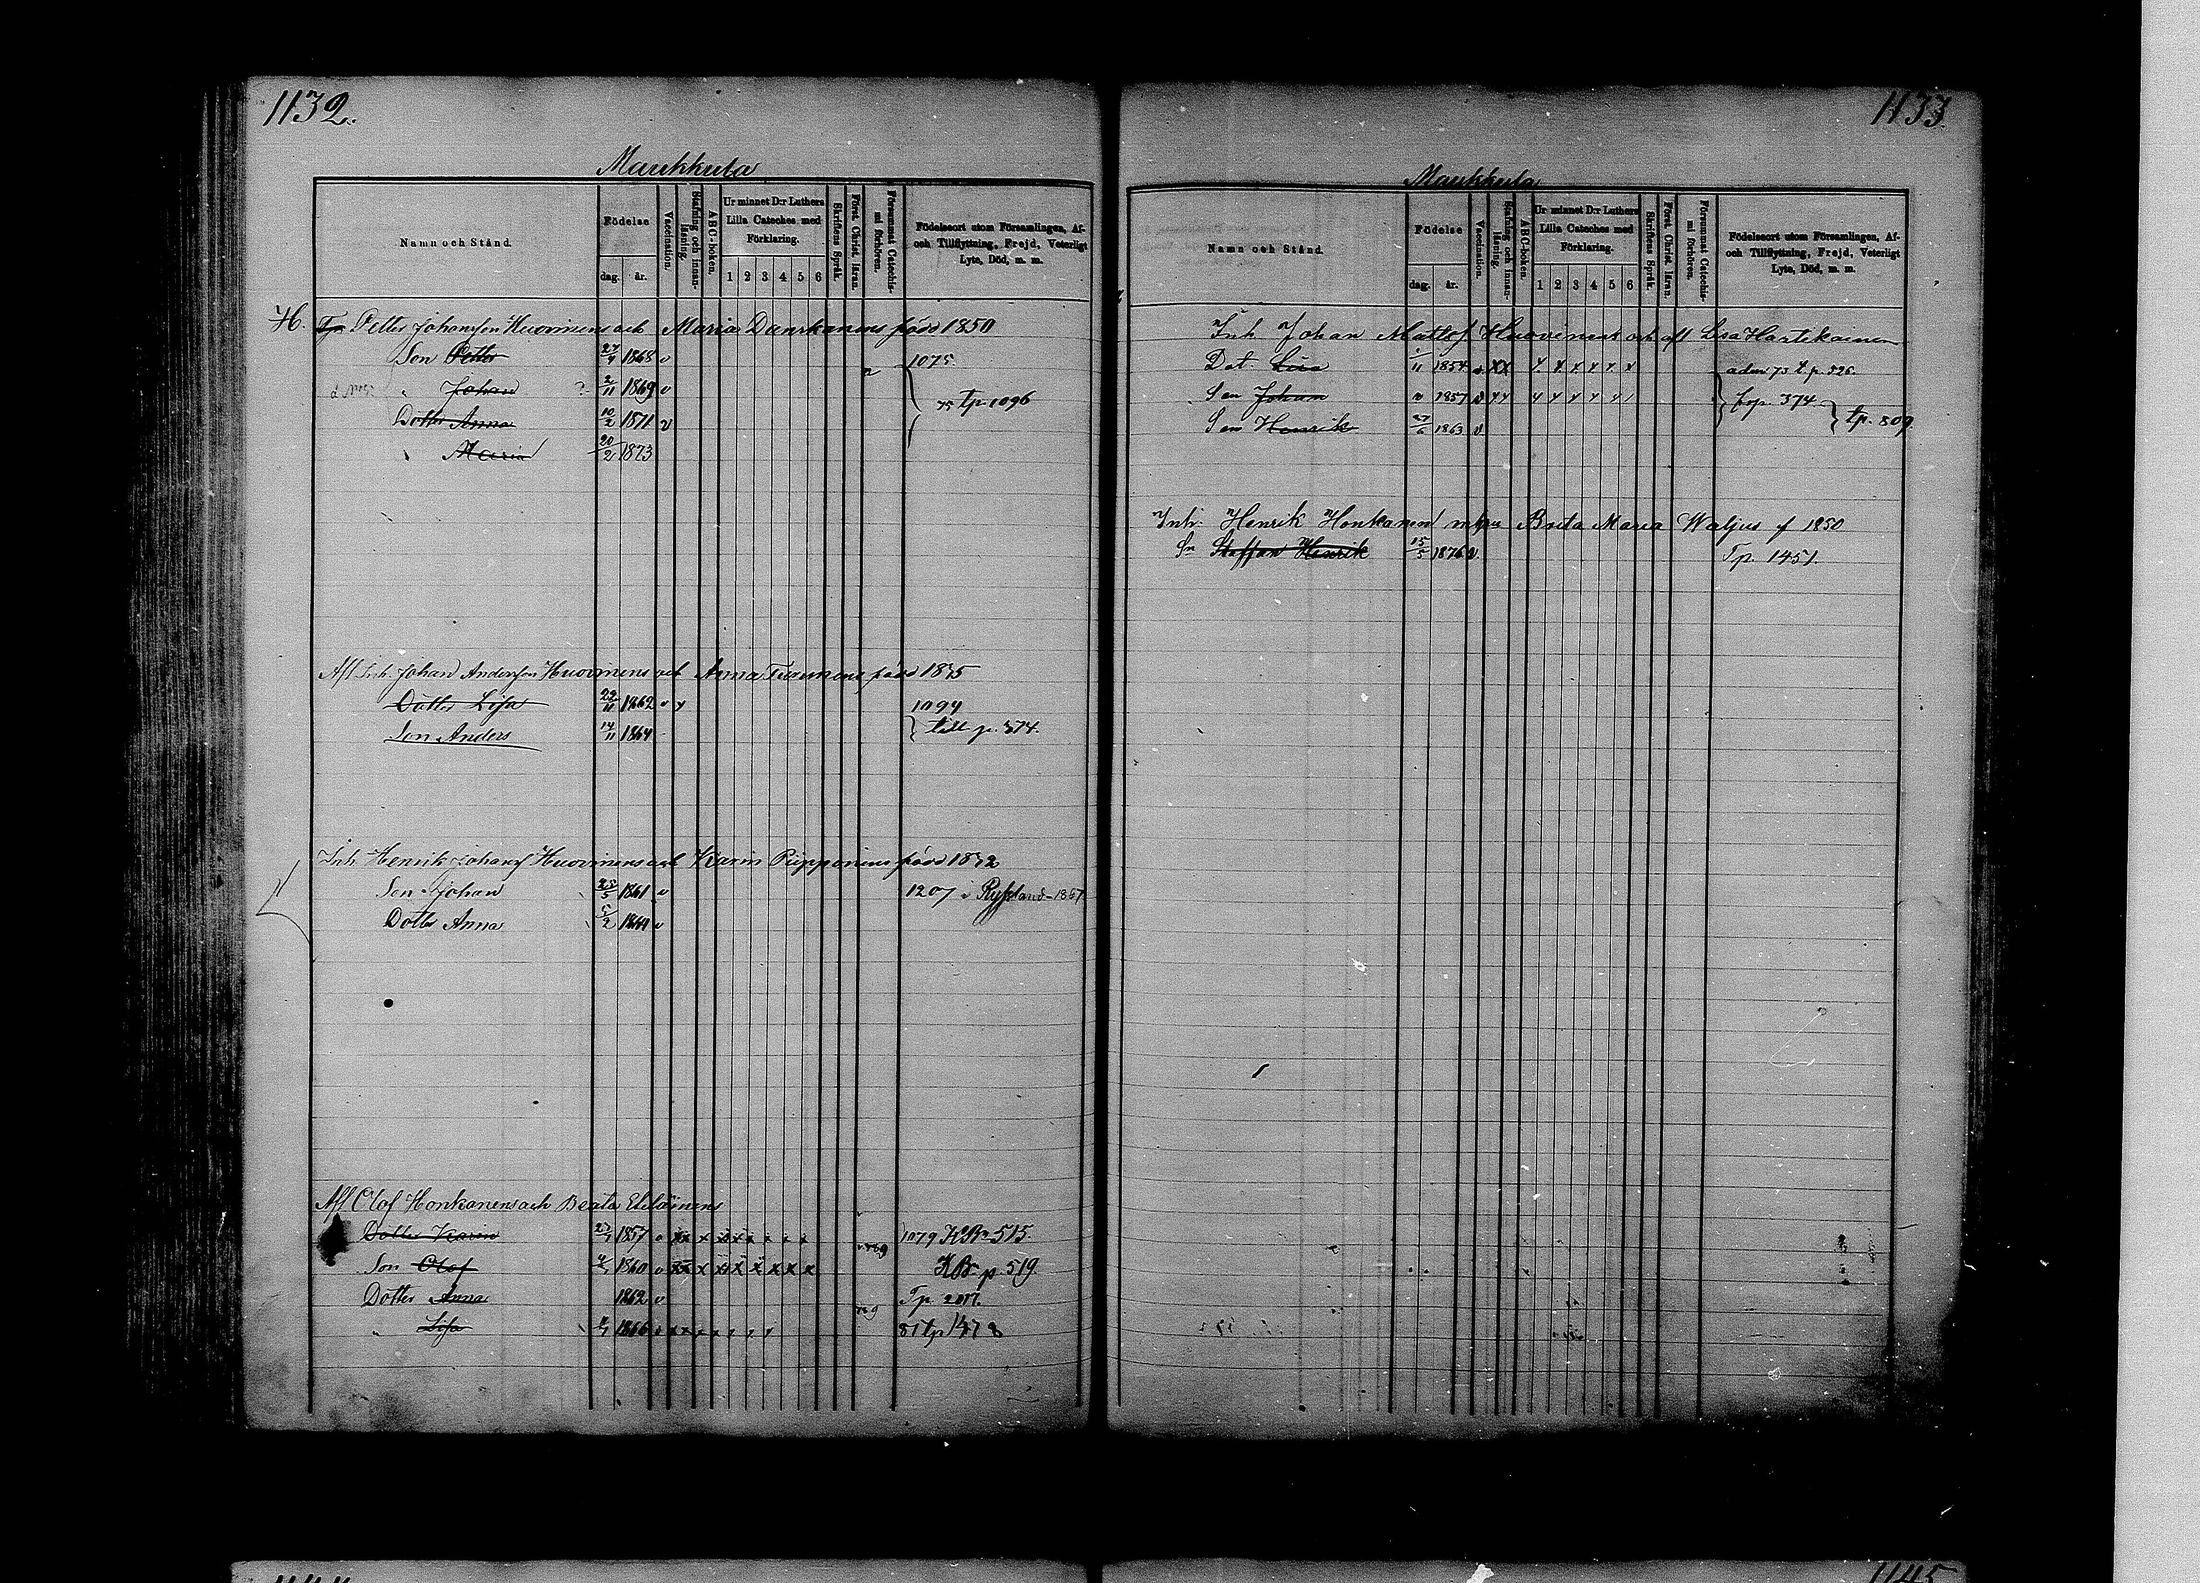 1132.
Maukkula
Namn och Stånd.
Födelse
dag. år.
Vaccination.
Stafning och innanläsning.
ABC-boken.
Ur minnet D:r Luthers Lilla Cateches med Förklaring.
1 2 3 4 5 6
Skriftens Språk.
Först. Christ. läran.
Försummat Catechismi förhören.
Födelseort utom Församlingen, Af- och Tillflyttning, Frejd, Veterligt Lyte, Död, m. m.
H. Petter Johansson Huovinens och Maria Danskanens född 1850
Son Petter 27/9 1868 v 1075.
" Johan 2/11 1869 v 75 tp 1096
Dotter Anna 10/2 1871 v
" Maria 20/2 1873
Afl. Inh. Johan Andersson Huovinens och Anna Turunens född 1835
Dotter Lisa 22/11 1862 v x 1094
Son Anders 14/11 1864 p. 374.
Inh. Henrik Johansf Huovinens och Karin Piipponens född 1832
Son Johan 25/5 1861 v 1207 i Ryssland
Dotter Anna 5/2 1864 v
Afl Olof Honkanens och Beata
Dotter Karin 1857 v xx x x x x x x x 1079 KB. 515.
Son Olof 1860 v xx x x x x x x x KB p. 519.
Dotter Anna 1862 v Tp.
" Lisa 1866 81 tp 1478
1133
Maukkula
Namn och Stånd.
Födelse
dag. år.
Vaccination.
Stafning och innanläsning.
ABC-boken.
Ur minnet D:r Luthers Lilla Cateches med Förklaring.
1 2 3 4 5 6
Skriftens Språk.
Först. Christ. läran.
Försummat Catechismi förhören.
Födelseort utom Församlingen, Af- och Tillflyttning, Frejd, Veterligt Lyte, Död, m. m.
Inh. Johan Matssf. Huovinens och afl Lisa Hartikainen
Dot. Lisa 1/11 1854 v xx x x x x x x
Son Johan 1857 v xx x x x x x p. 374
Son Henrik 27/6 1863 v tp. 809.
Inh. Henrik Honkanen m hu Brita Maria Waljus f 1850
Sn Staffan Henrik 15/5 1876 v Tp. 1451.
1145